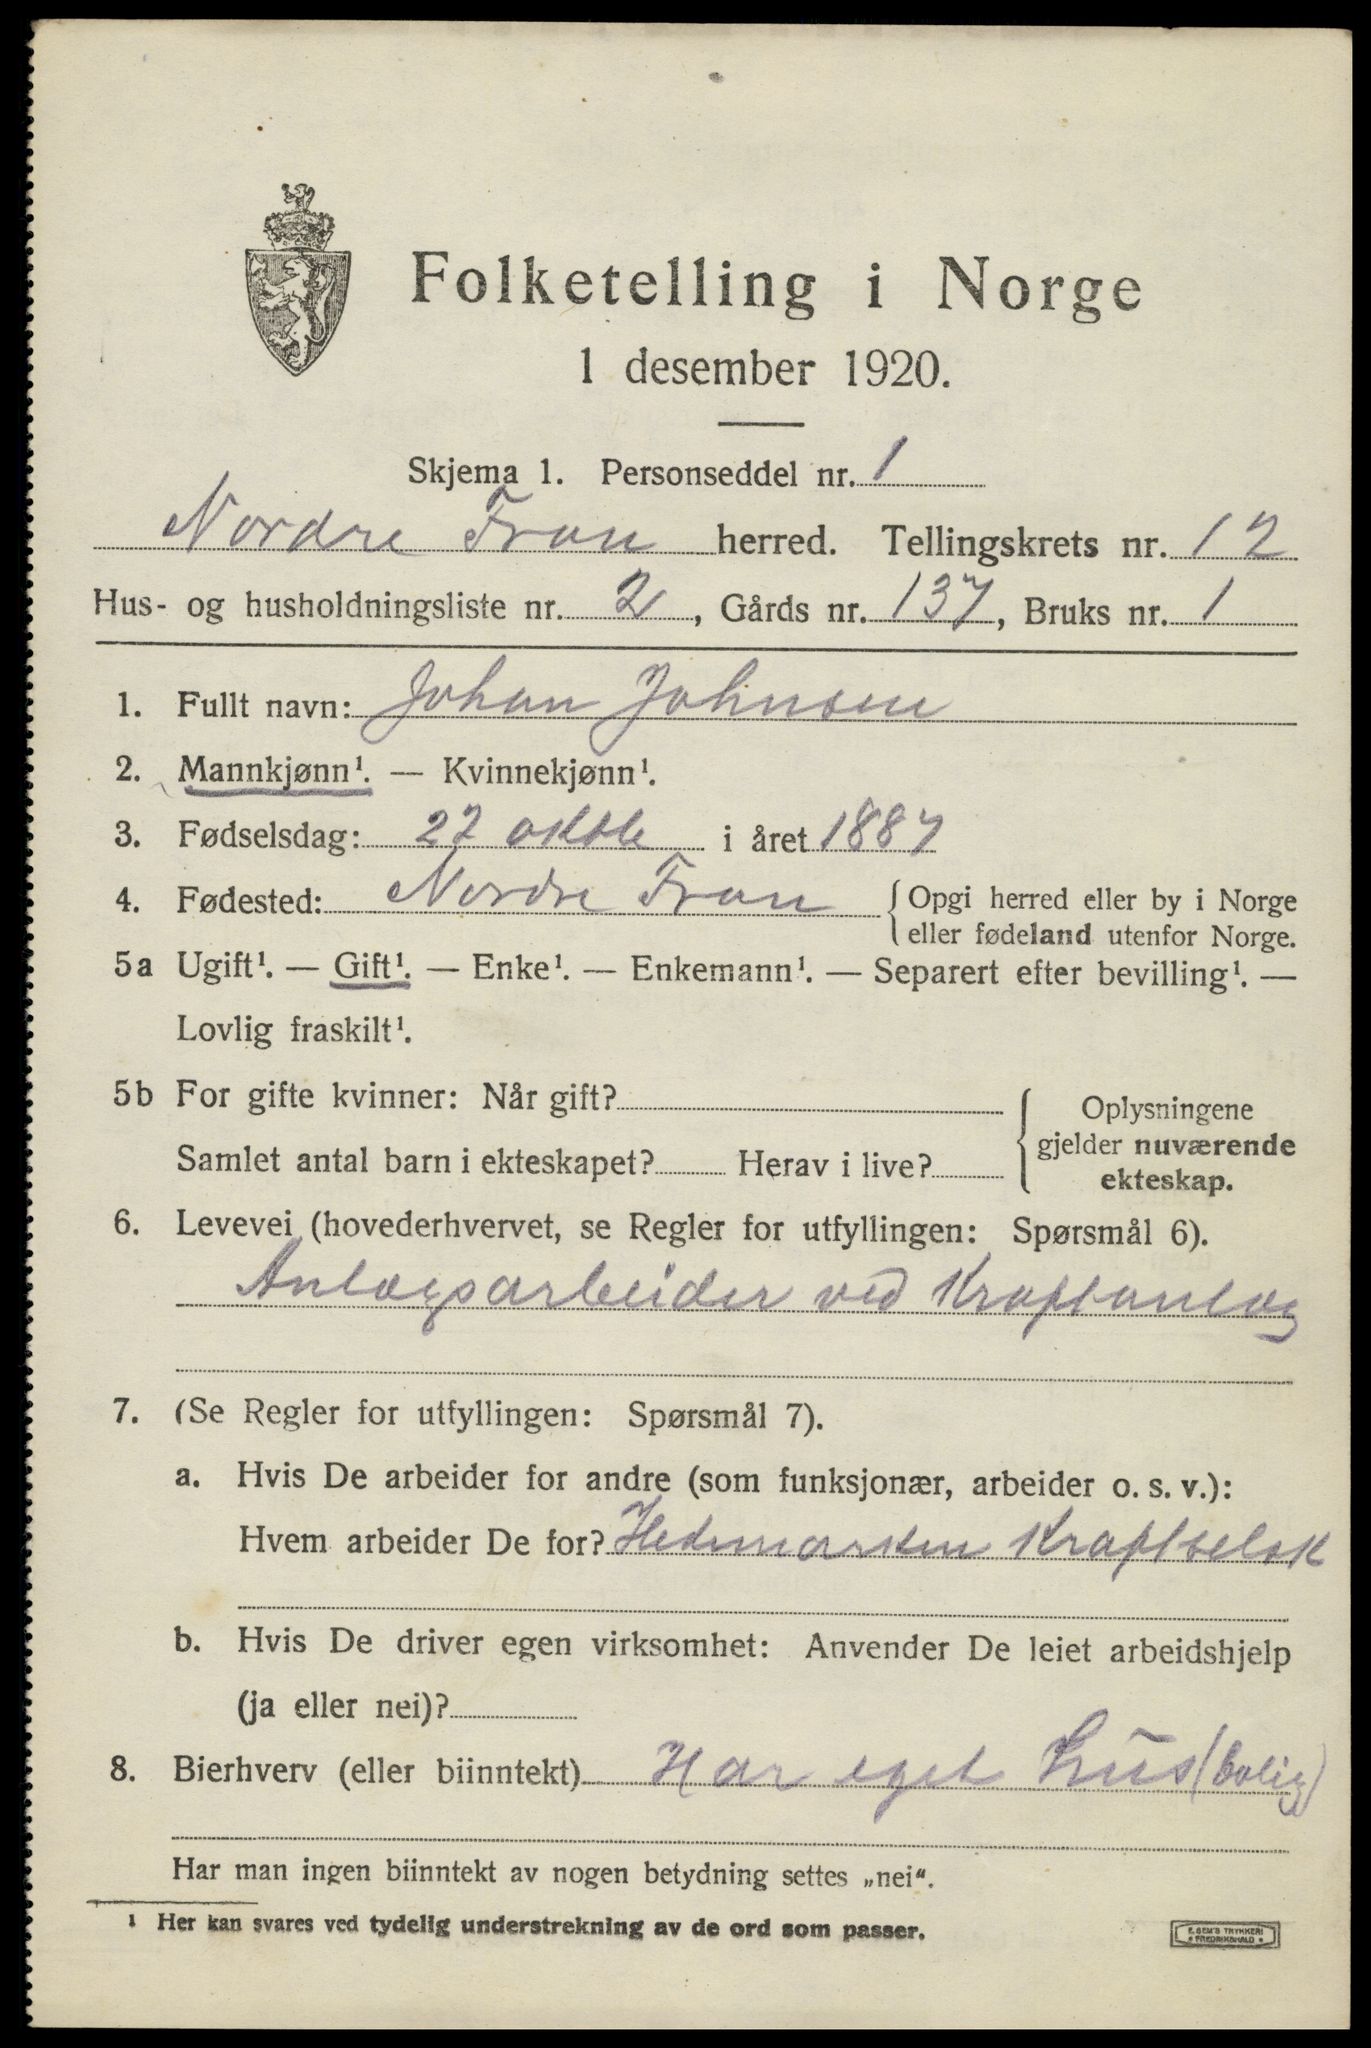 Folketelling i Norge
1 desember 1920.
Skjema 1. Personseddel nr. 1
Nordre Fron herred. Tellingskrets nr. 12
Hus- og husholdningsliste nr. 2, Gårds nr. 137, Bruks nr. 1
1. Fullt navn: Johan Johnsen
2. Mannkjønn¹. — Kvinnekjønn¹.
3. Fødselsdag: 27 oktbr i året 1887
4. Fødested: Nordre Fron { Opgi herred eller by i Norge
eller fødeland utenfor Norge.
5a Ugift¹. — Gift¹. — Enke¹. — Enkemann¹. — Separert efter bevilling¹. —
Lovlig fraskilt¹.
5b For gifte kvinner: Når gift?
Samlet antal barn i ekteskapet? Herav i live?
{ Oplysningene
gjelder nuværende
ekteskap.
6. Levevei (hovederhvervet, se Regler for utfyllingen: Spørsmål 6).
Anlægsarbeider ved Kraftanlæg
7. (Se Regler for utfyllingen: Spørsmål 7).
a. Hvis De arbeider for andre (som funksjonær, arbeider o. s. v.):
Hvem arbeider De for? Hedemarken Kraftselsk
b. Hvis De driver egen virksomhet: Anvender De leiet arbeidshjelp
(ja eller nei)?
8. Bierhverv (eller biinntekt) Har eget hus (bolig)
Har man ingen biinntekt av nogen betydning settes „nei“.
¹ Her kan svares ved tydelig understrekning av de ord som passer.
E. SEM'S TRYKKERI
FREDRIKSHALD